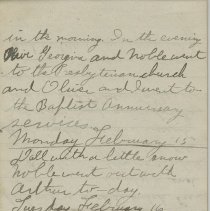 in the morning. In the evening
Geneva and Noble went
to the Presbyterian church
and Oliver and I went to
the Baptist Anniversary
services.
Monday February 15
Still with a little snow
Noble went out with
Arthur to-day.
Tuesday February 16